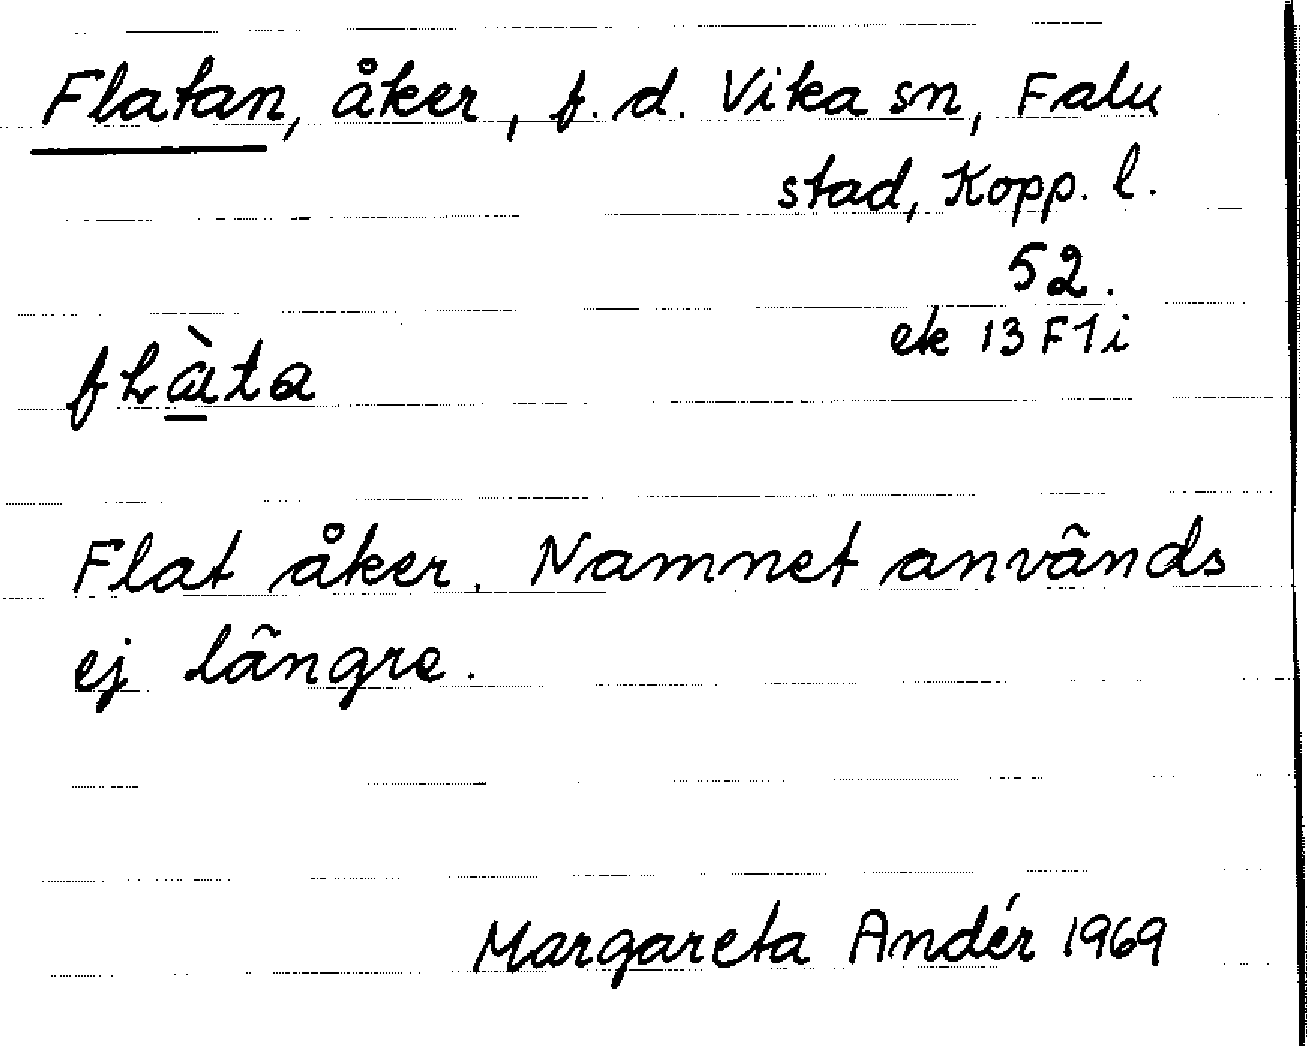 Flatan, åker, f.d. Vika sn, Falu
stad, Kopp. l.
52.
ek 13 F1i
fLàta
Flat åker. Namnet används
ej längre.
Margareta Andér 1969